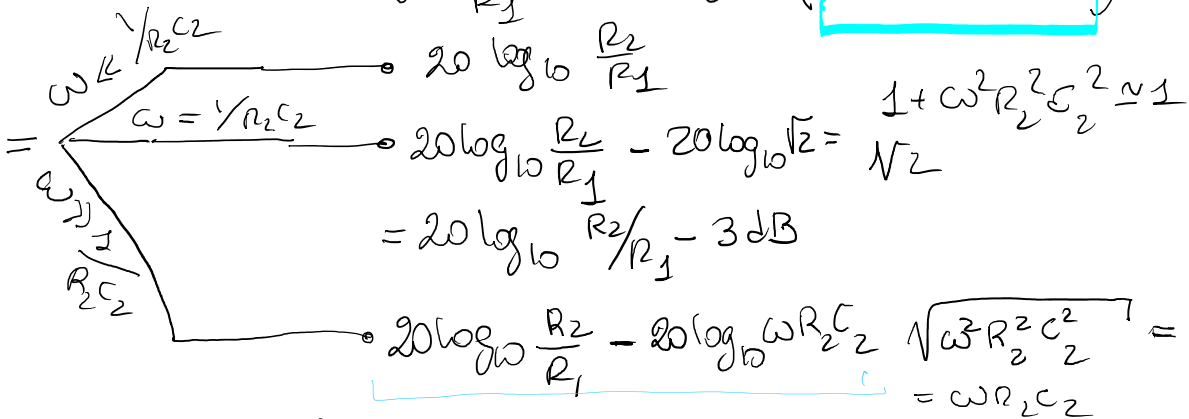 R₁
ω << 1/R₂C₂
20 log₁₀ R₂/R₁
1 + ω²R₂²C₂² ≃ 1
= ω = 1/R₂C₂
20 log₁₀ R₂/R₁ - 20 log₁₀ √2 =
√2
ω >> 1/R₂C₂
= 20 log₁₀ R₂/R₁ - 3 dB
20 log₁₀ R₂/R₁ - 20 log₁₀ ωR₂C₂
√ω²R₂²C₂² =
= ωR₂C₂